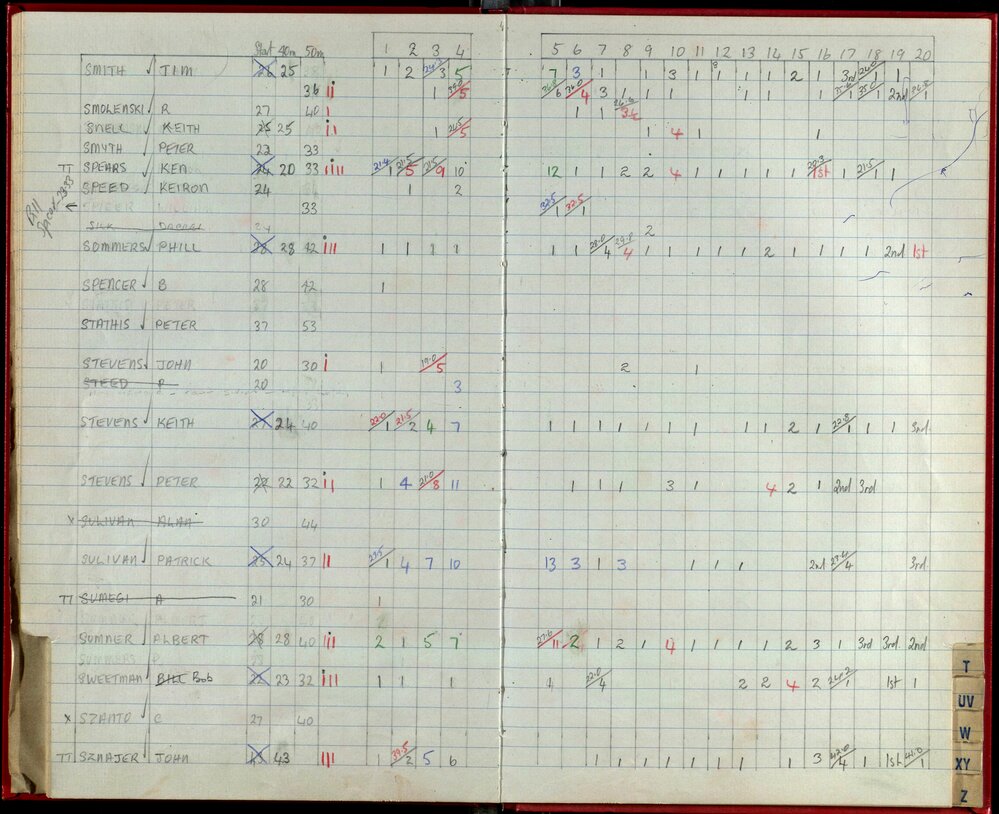 Start 40m 50m 1 2 3 4 5 6 7 8 9 10 11 12 13 14 15 16 17 18 19 20
SMITH JIM 25 1 2 5 7 3 1 1 3 1 1 1 1 1 2 1 3rd 1 1
36 II 1 5 6 4 3 1 1 1 1 1 1 1 1 2nd 1
SMOLENSKI R 27 40 I 1 1 3½
SNELL KEITH 25 25 II 1 5 1 4 1 1
SMYTH PETER 23 33
TT SPEARS KEN 24 20 33 IIII 21.4 1 21.5 5 21.5 9 10 12 1 1 2 2 4 1 1 1 1 1 20.3 1st 1 21.5 1 1 1
SPEED KEIRON 24 1 2
Bill Spicer
33 32.5 1 32.5 1
SILK 24
SOMMERS PHILL 28 28 42 III 1 1 1 1 1 1 28.0 4 29.0 4 2 1 1 1 1 1 2 1 1 1 1 2nd 1st
SPENCER B 28 42 1
PETER
STATHIS PETER 37 53
STEVENS JOHN 20 30 I 1 19.0 5 2 1
STEED P 20 3
STEVENS KEITH 24 40 22.0 1 21.5 2 4 7 1 1 1 1 1 1 1 1 1 2 1 22.8 1 1 1 3rd
STEVENS PETER 22 22 32 II 1 4 21.0 8 11 1 1 1 3 1 4 2 1 2nd 3rd
X SULIVAN ALAN 30 44
SULIVAN PATRICK 25 24 37 II 23.5 1 4 7 10 13 3 1 3 1 1 1 2nd 23.4 4 3rd
TT SUMEGI A 21 30 1
SUMNER ALBERT 28 28 40 III 2 1 5 7 27.6 11 2 1 2 1 4 1 1 1 1 2 3 1 3rd 3rd 2nd
SUMMERS P
SWEETMAN BILL Bob 22 23 32 III 1 1 1 1 22.0 4 2 2 4 2 24.2 1 1st 1
X SZANTO C 27 40
TT SZNAJER JOHN 43 III 1 39.5 2 5 6 1 1 1 1 1 1 1 1 3 42.0 4 1 1st 41.0 1
T
UV
W
XY
Z